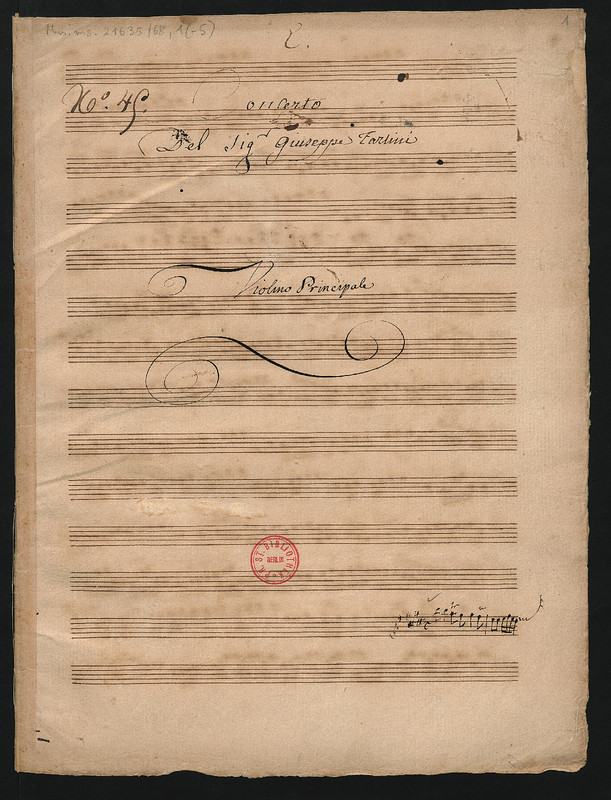 Mus. ms. 21635/68, 1(-5)
1
No. 45.
Concerto
Del Sigr Giuseppe Tartini
Violino Principale
PR. ST. BIBLIOTHEK
BERLIN